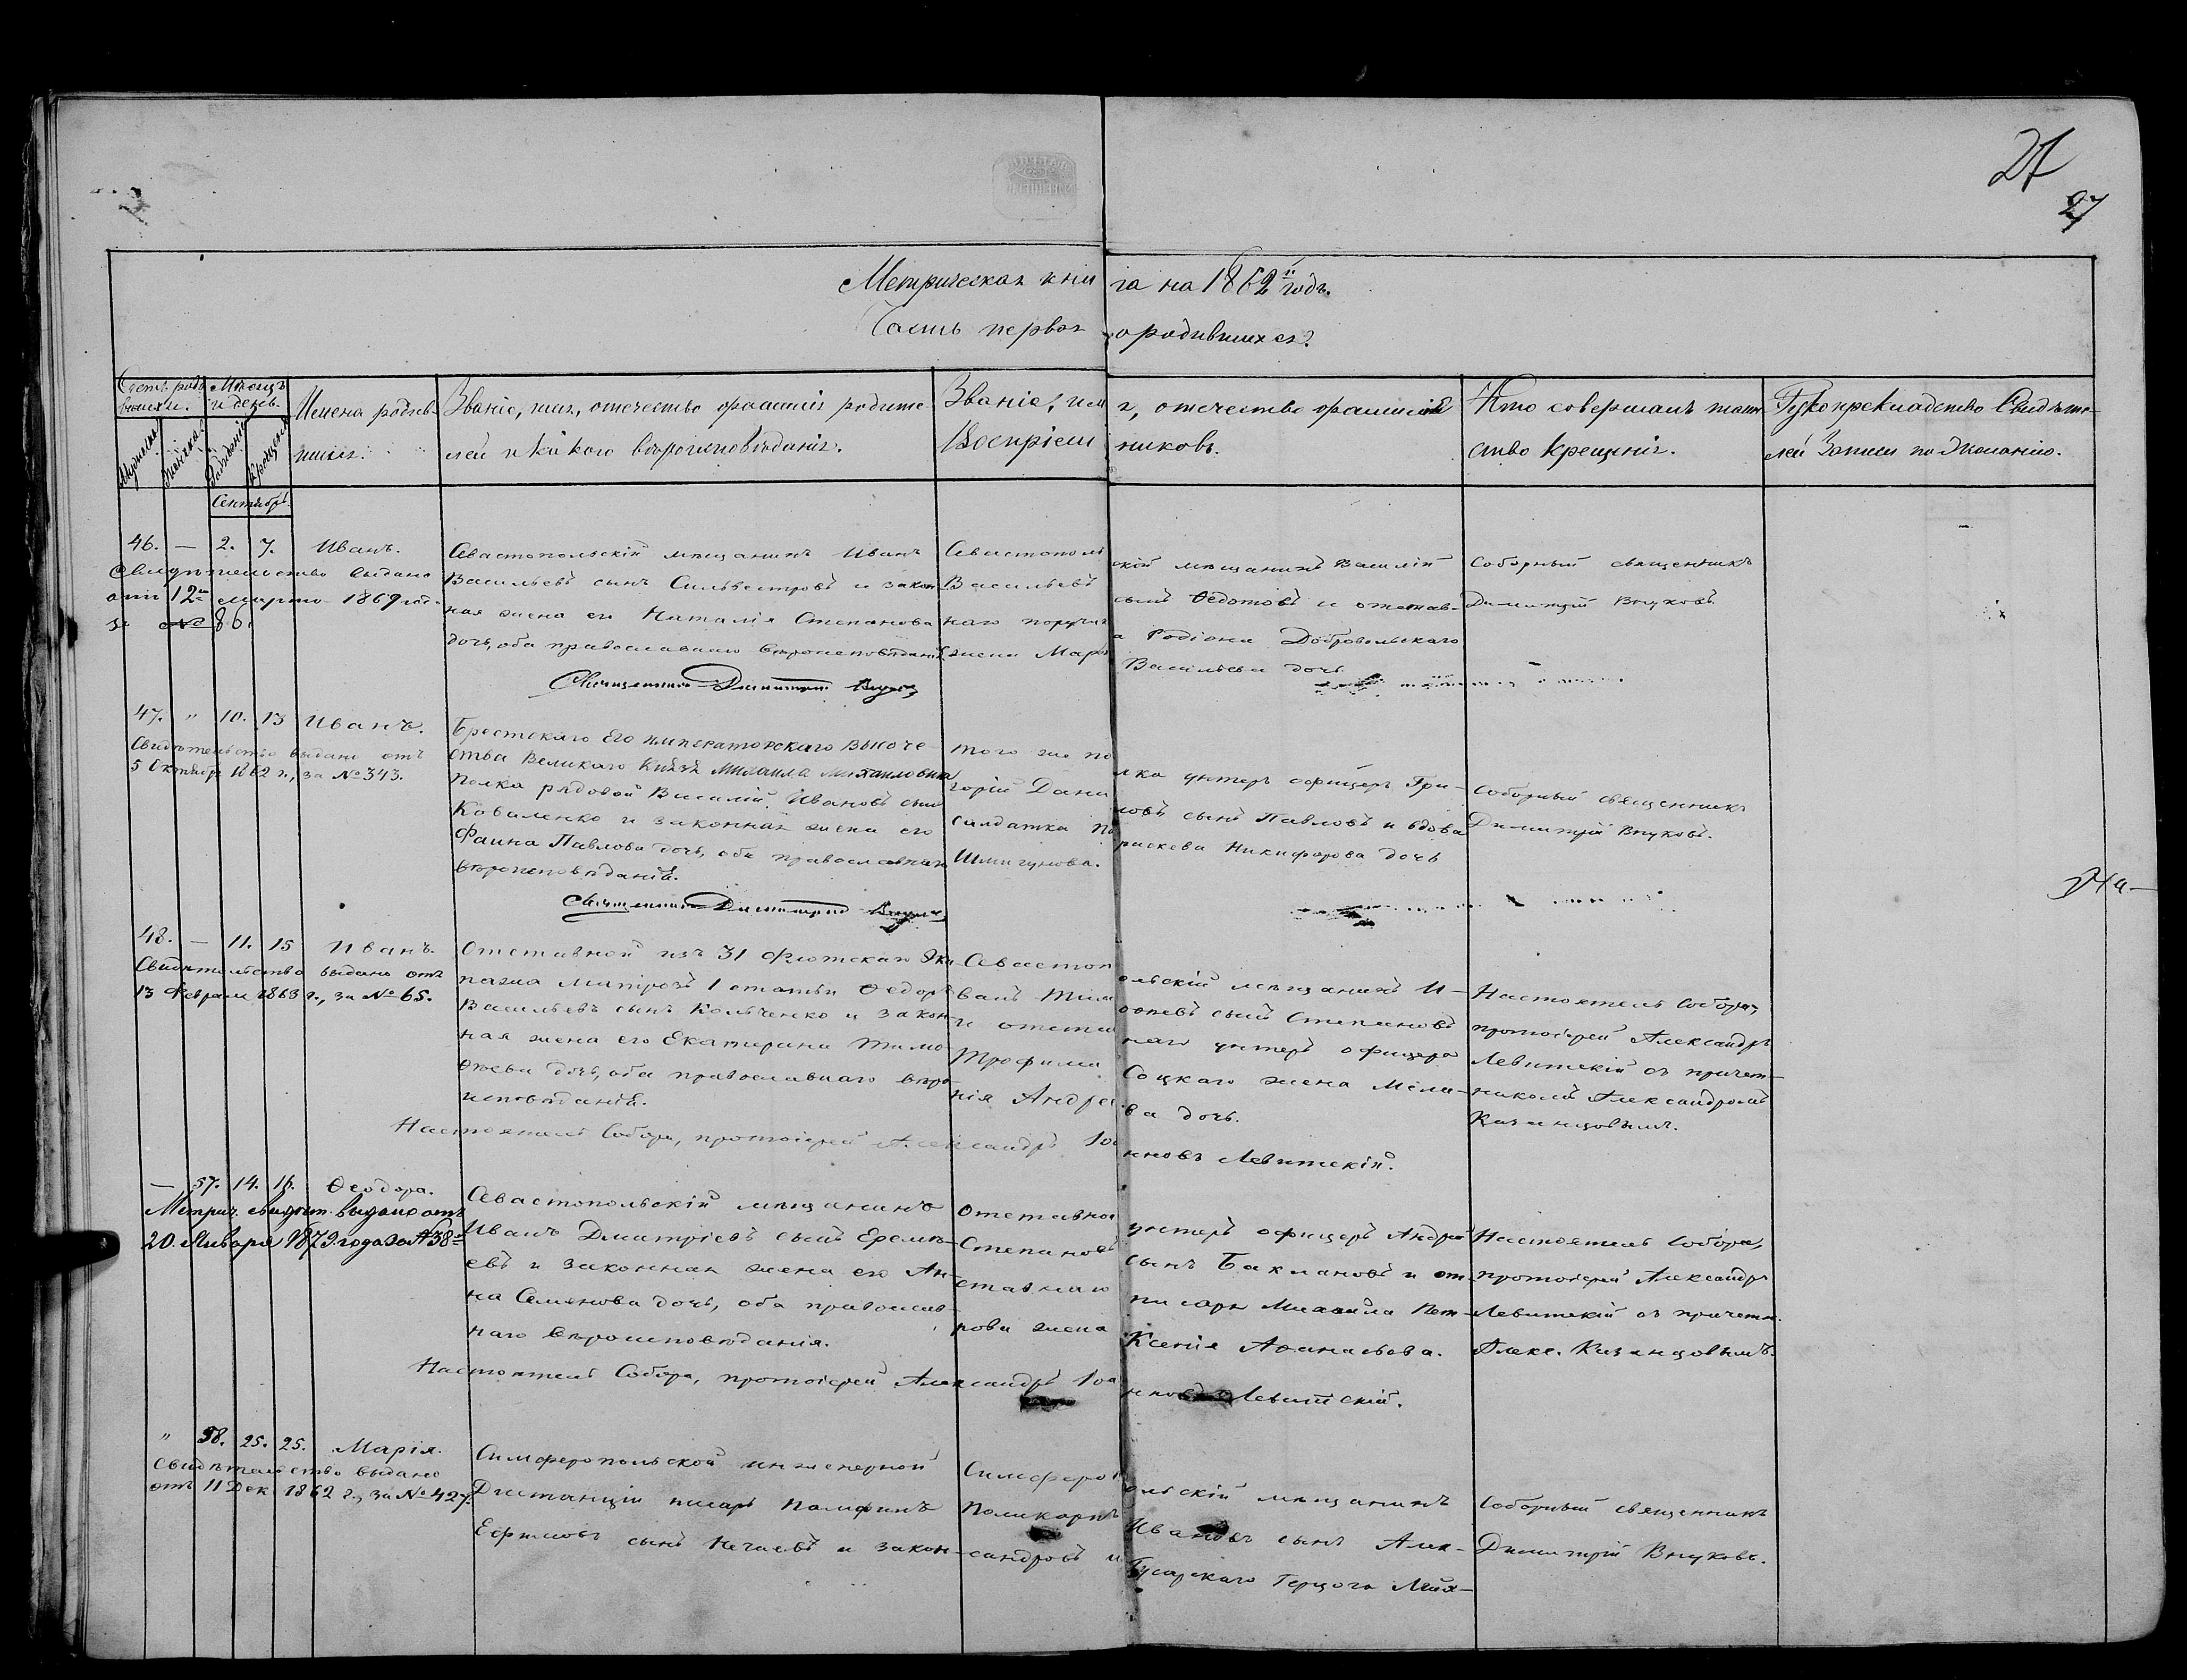 27
27
Метрическая книга на 1862й годъ.
Часть первая о родившихся.
Счетъ родившихся.
Мѣсяцъ и день.
Имена родившихся.
Званіе, имя, отечество и фамилія родителей и какого вѣроисповѣданія.
Званіе, имя, отечество и фамилія Воспріемниковъ.
Кто совершалъ таинство крещенія.
Рукоприкладство Свидѣтелей Записи по желанію.
Мужеска. Женска. Рожденія. Крещенія.
Сентябрь.
46. — 2. 7. Иванъ.
Свидѣтельство выдано
отъ 12го Марта 1869 год.
за № 86.
Севастопольскій мѣщанинъ Иванъ
Васильевъ сынъ Сильвестровъ и закон
ная жена его Наталія Степанова
дочь, оба православнаго вѣроисповѣданія.
Севастопольскій мѣщанинъ Василій
Васильевъ сынъ Ѳедотовъ и отстав-
наго поручика Родіона Добровольскаго
жена Марья Васильева дочь
Соборный священникъ
Димитрій Внуковъ.
Священникъ Димитрій Внуковъ
47. " 10. 13 Иванъ.
Свидѣтельство выдано отъ
5 Октября 1862 г., за № 343.
Брестскаго Его Императорскаго Высоче-
ства Великаго Князя Михаила Михаиловича
полка рядовой Василій Ивановъ сынъ
Коваленко и законная жена его
Фаина Павлова дочь, оба православнаго
вѣроисповѣданія.
того же полка унтеръ офицеръ Гри-
горій Даниловъ сынъ Павловъ и вдова
солдатка Параскева Никифорова дочь
Шмигунова.
Соборный священникъ
Димитрій Внуковъ.
Священникъ Димитрій Внуковъ
48. — 11. 15 Иванъ.
Свидѣтельство выдано отъ
13 Февраля 1863 г., за № 65.
Отставной изъ 31 Флотскаго Эки
пажа матрозъ 1 статьи Ѳедоръ
Васильевъ сынъ Кольченко и закон-
ная жена его Екатерина Тимо-
ѳеева дочь, оба православнаго вѣро-
исповѣданія.
Севастопольскій мѣщанинъ И-
ванъ Тимоѳеевъ сынъ Степановъ
и отставнаго унтеръ офицера
Трофима Соцкаго жена Мела-
нія Андреева дочь.
Настоятель Собора,
протоіерей Александръ
Левитскій съ причет-
никомъ Александромъ
Казанцовымъ.
Настоятель Собора, протоіерей Александръ Іоанновъ Левитскій.
— 57. 14. 16. Ѳеодора.
Метрич. свидѣт. выдано отъ
20. Января 1879. года за № 38м
Севастопольскій мѣщанинъ
Иванъ Дмитріевъ сынъ Еремѣ-
евъ и законная жена его Ан-
на Семенова дочь, оба православ-
наго вѣроисповѣданія.
Отставной унтеръ офицеръ Андрей
Степановъ сынъ Бакмановъ и от-
ставнаго писаря Михаила Пет-
рова жена Ксенія Аѳанасьева.
Настоятель Собора,
протоіерей Александръ
Левитскій съ причетн.
Алекс. Казанцовымъ.
Настоятель Собора, протоіерей Александръ Іоанновъ Левитскій.
" 58. 25. 25. Марія.
Свидѣтельство выдано
отъ 11 Дек 1862 г., за № 427.
Симферопольской инженерной
Дистанціи писарь Памфилъ
Ефимовъ сынъ Нечаевъ и закон-
Симферопольскій мѣщанинъ
Поликарпъ Ивановъ сынъ Алек-
сандровъ и Гусарскаго Герцога Лейх-
Соборный священникъ
Димитрій Внуковъ.